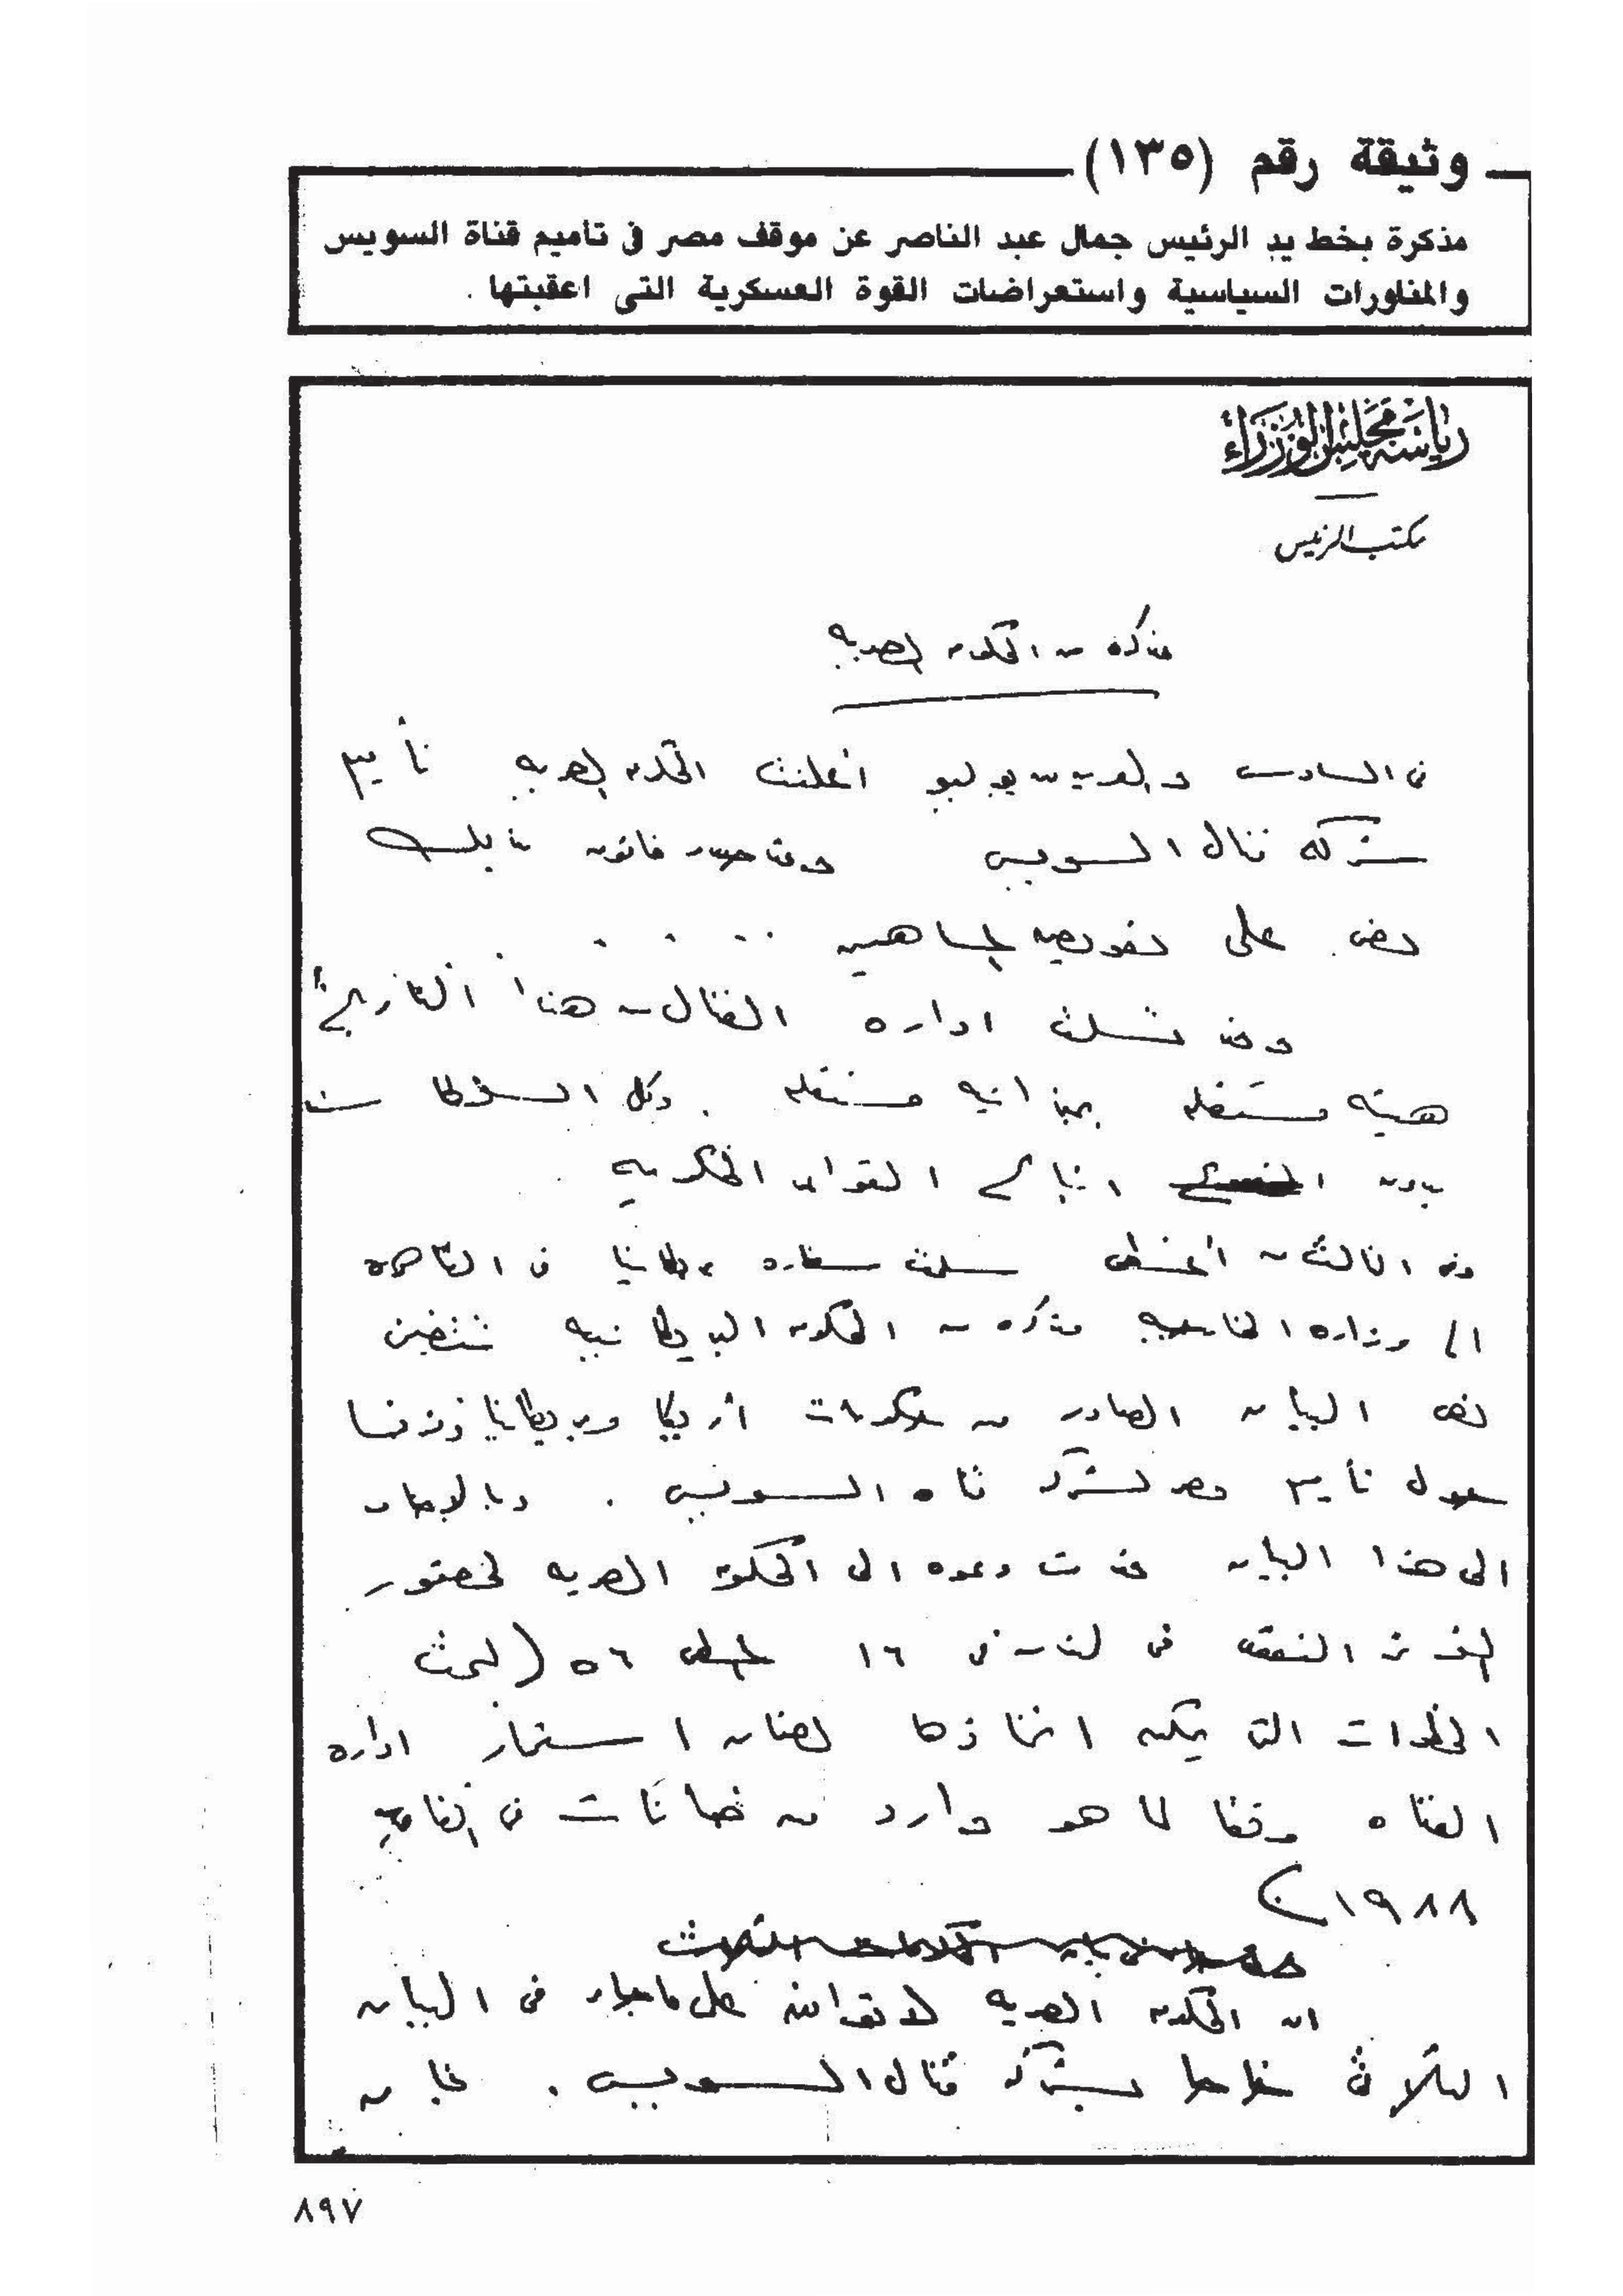 وثيقة رقم (١٣٥)
مذكرة بخط يد الرئيس جمال عبد الناصر عن موقف مصر فى تاميم قناة السويس
والمناورات السياسية واستعراضات القوة العسكرية التى اعقبتها .
رياسة مجلس الوزراء
مكتب الرئيس
مذكره من الحكومه المصريه
فى السادس والعشرين يوليو أعلنت الحكومه المصريه تأميم
شركه قنال السويس
نص على تعويض المساهمين . . . . .
وقد اداره القنال من هذا التاريخ
هيئه مستقله بميزانيه مستقله . وكل السلطات
بدون اتباع القواعد الحكوميه .
وفى الثالث من أغسطس سلمت سفاره بريطانيا فى القاهره
الى وزاره الخارجيه مذكره من الحكومه البريطانيه تتضمن
نص البيان الصادر من حكومات أمريكا وبريطانيا وفرنسا
حول تأميم مصر لشركه قناه السويس . وبالاضافه
الى هذا البيان دعوه الى الحكومه المصريه لحضور
المؤتمر فى لندن فى ١٦ اغسطس ٥٦ (لبحث
الخطوات التى يمكن اتخاذها لضمان استمرار اداره
القناه وفقا لما هو وارد من ضمانات فى اتفاقيه
١٩٨٨)
ان الحكومه المصريه لا توافق على ما جاء فى البيان
الثلاثى خاصا بشركه قنال السويس .
٨٩٧